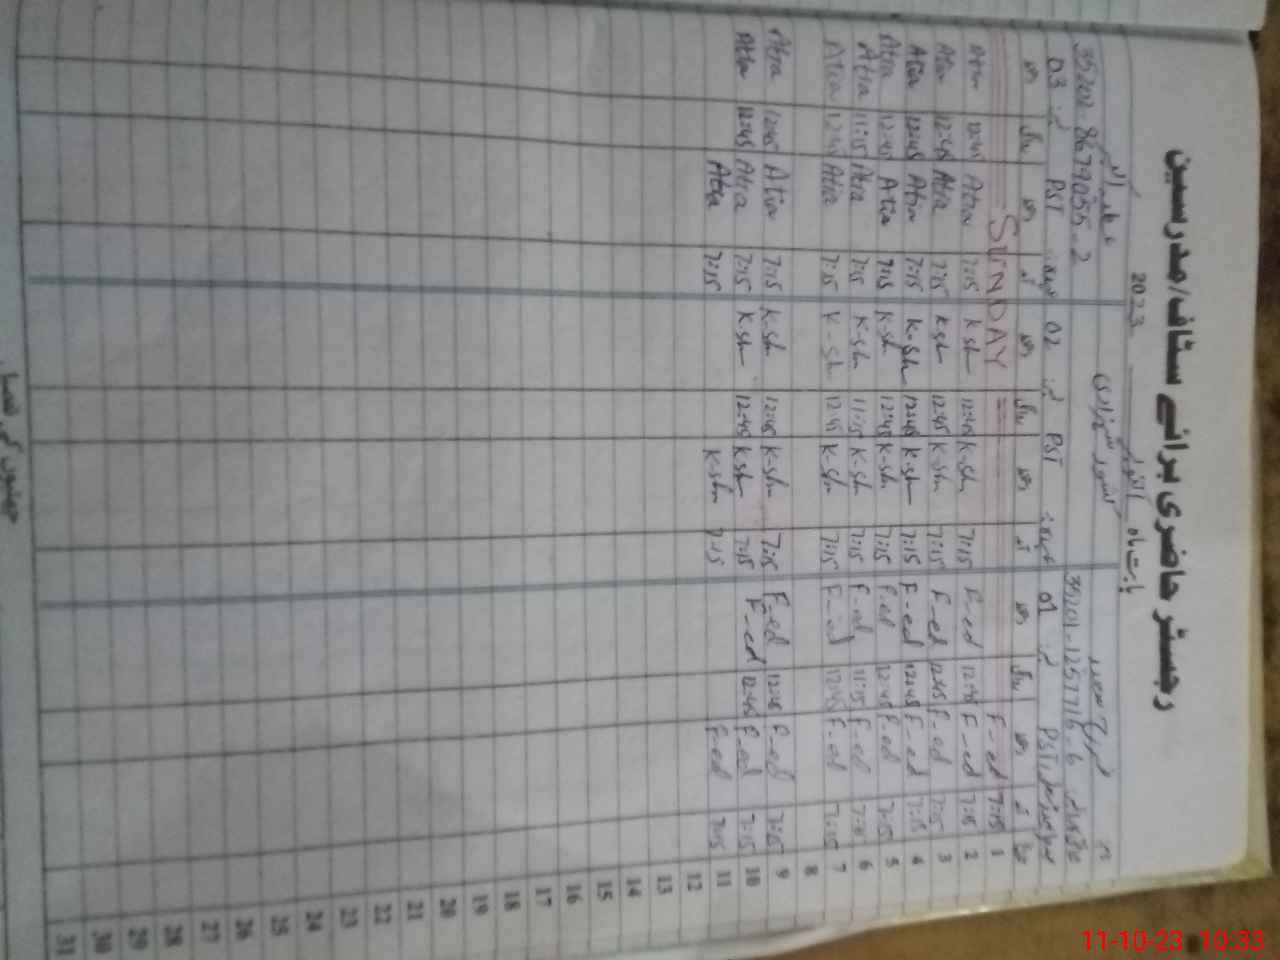 رجسٹر حاضری برائے سٹاف/مدرسین
بابت ماہ اکتوبر 2023
35202-8679055-2 35201-1257716-6
03 PST 02 PST 01 PST
1 7:15 F-ed SUNDAY
2 7:15 F-ed 12:45 F-ed 7:15 K-sh 12:45 K-sh 7:15 Atia 12:45 Atia
3 7:15 F-ed 12:45 F-ed 7:15 K-sh 12:45 K-sh 7:15 Atia 12:45 Atia
4 7:15 F-ed 12:45 F-ed 7:15 K-sh 12:45 K-sh 7:15 Atia 12:45 Atia
5 7:15 F-ed 12:45 F-ed 7:15 K-sh 12:45 K-sh 7:15 Atia 12:45 Atia
6 7:15 F-ed 11:15 F-ed 7:15 K-sh 11:15 K-sh 7:15 Atia 11:15 Atia
7 7:15 F-ed 12:45 F-ed 7:15 K-sh 12:45 K-sh 7:15 Atia 12:45 Atia
8
9 7:15 F-ed 12:45 F-ed 7:15 K-sh 12:45 K-sh 7:15 Atia 12:45 Atia
10 7:15 F-ed 12:45 F-ed 7:15 K-sh 12:45 K-sh 7:15 Atia 12:45 Atia
11 7:15 F-ed 7:15 K-sh 7:15 Atia
12
13
14
15
16
17
18
19
20
21
22
23
24
25
26
27
28
29
30
31
11-10-23 10:33